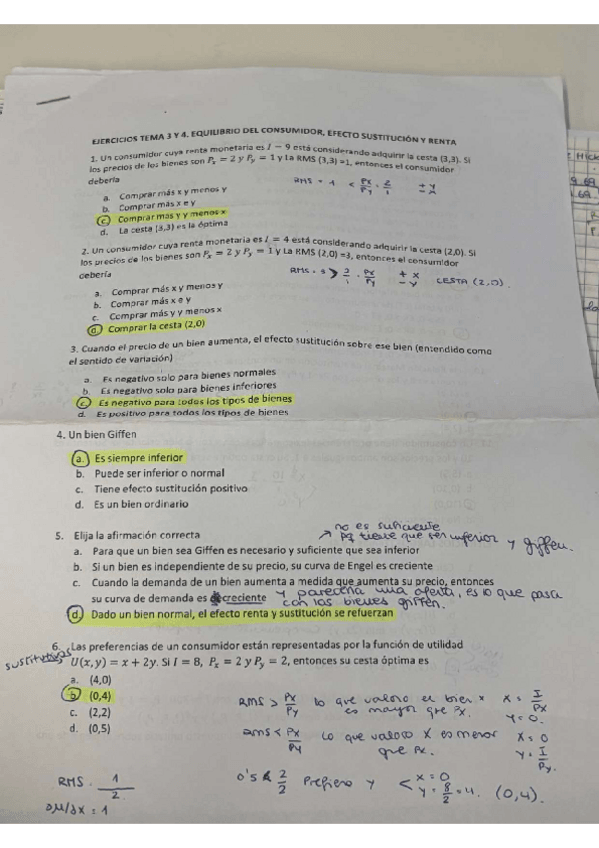 EJERCICIOS TEMA 3 Y 4. EQUILIBRIO DEL CONSUMIDOR, EFECTO SUSTITUCIÓN Y RENTA
1. Un consumidor cuya renta monetaria es I = 9 está considerando adquirir la cesta (3,3). Si
los precios de los bienes son Px = 2 y Py = 1 y La RMS (3,3) =1, entonces el consumidor
debería
RMS = 1 < Px/Py = 2/1 + y - x
a. Comprar más x y menos y
b. Comprar más x e y
c. Comprar mas y y menos x
d. La cesta (3,3) es la óptima
2. Un consumidor cuya renta monetaria es I = 4 está considerando adquirir la cesta (2,0). Si
los precios de los bienes son Px = 2 y Py = 1 y La RMS (2,0) =3, entonces el consumidor
debería
RMS = 3 > 2/1 = Px/Py + x - y CESTA (2,0).
a. Comprar más x y menos y
b. Comprar más x e y
c. Comprar más y y menos x
d. Comprar la cesta (2,0)
3. Cuando el precio de un bien aumenta, el efecto sustitución sobre ese bien (entendido como
el sentido de variación)
a. Es negativo solo para bienes normales
b. Es negativo solo para bienes inferiores
c. Es negativo para todos los tipos de bienes
d. Es positivo para todos los tipos de bienes
4. Un bien Giffen
a. Es siempre inferior
b. Puede ser inferior o normal
c. Tiene efecto sustitución positivo
d. Es un bien ordinario
no es suficiente
pq tiene que ser inferior y giffen.
5. Elija la afirmación correcta
a. Para que un bien sea Giffen es necesario y suficiente que sea inferior
b. Si un bien es independiente de su precio, su curva de Engel es creciente
c. Cuando la demanda de un bien aumenta a medida que aumenta su precio, entonces
su curva de demanda es creciente y parecería una oferta, es lo que pasa
con los bienes giffen.
d. Dado un bien normal, el efecto renta y sustitución se refuerzan
6. Las preferencias de un consumidor están representadas por la función de utilidad
sustitutivos
U(x,y) = x + 2y. Si I = 8, Px = 2 y Py = 2, entonces su cesta óptima es
a. (4,0)
b. (0,4)
c. (2,2)
d. (0,5)
RMS > Px/Py lo que valoro el bien x es mayor que Px. x = I/Px y = 0.
RMS < Px/Py lo que valoro x es menor que Px. x = 0 y = I/Py.
RMS = 1/2
0's < 2/2 Prefiero y < x = 0 y = 8/2 = 4. (0,4).
∂U/∂x = 1